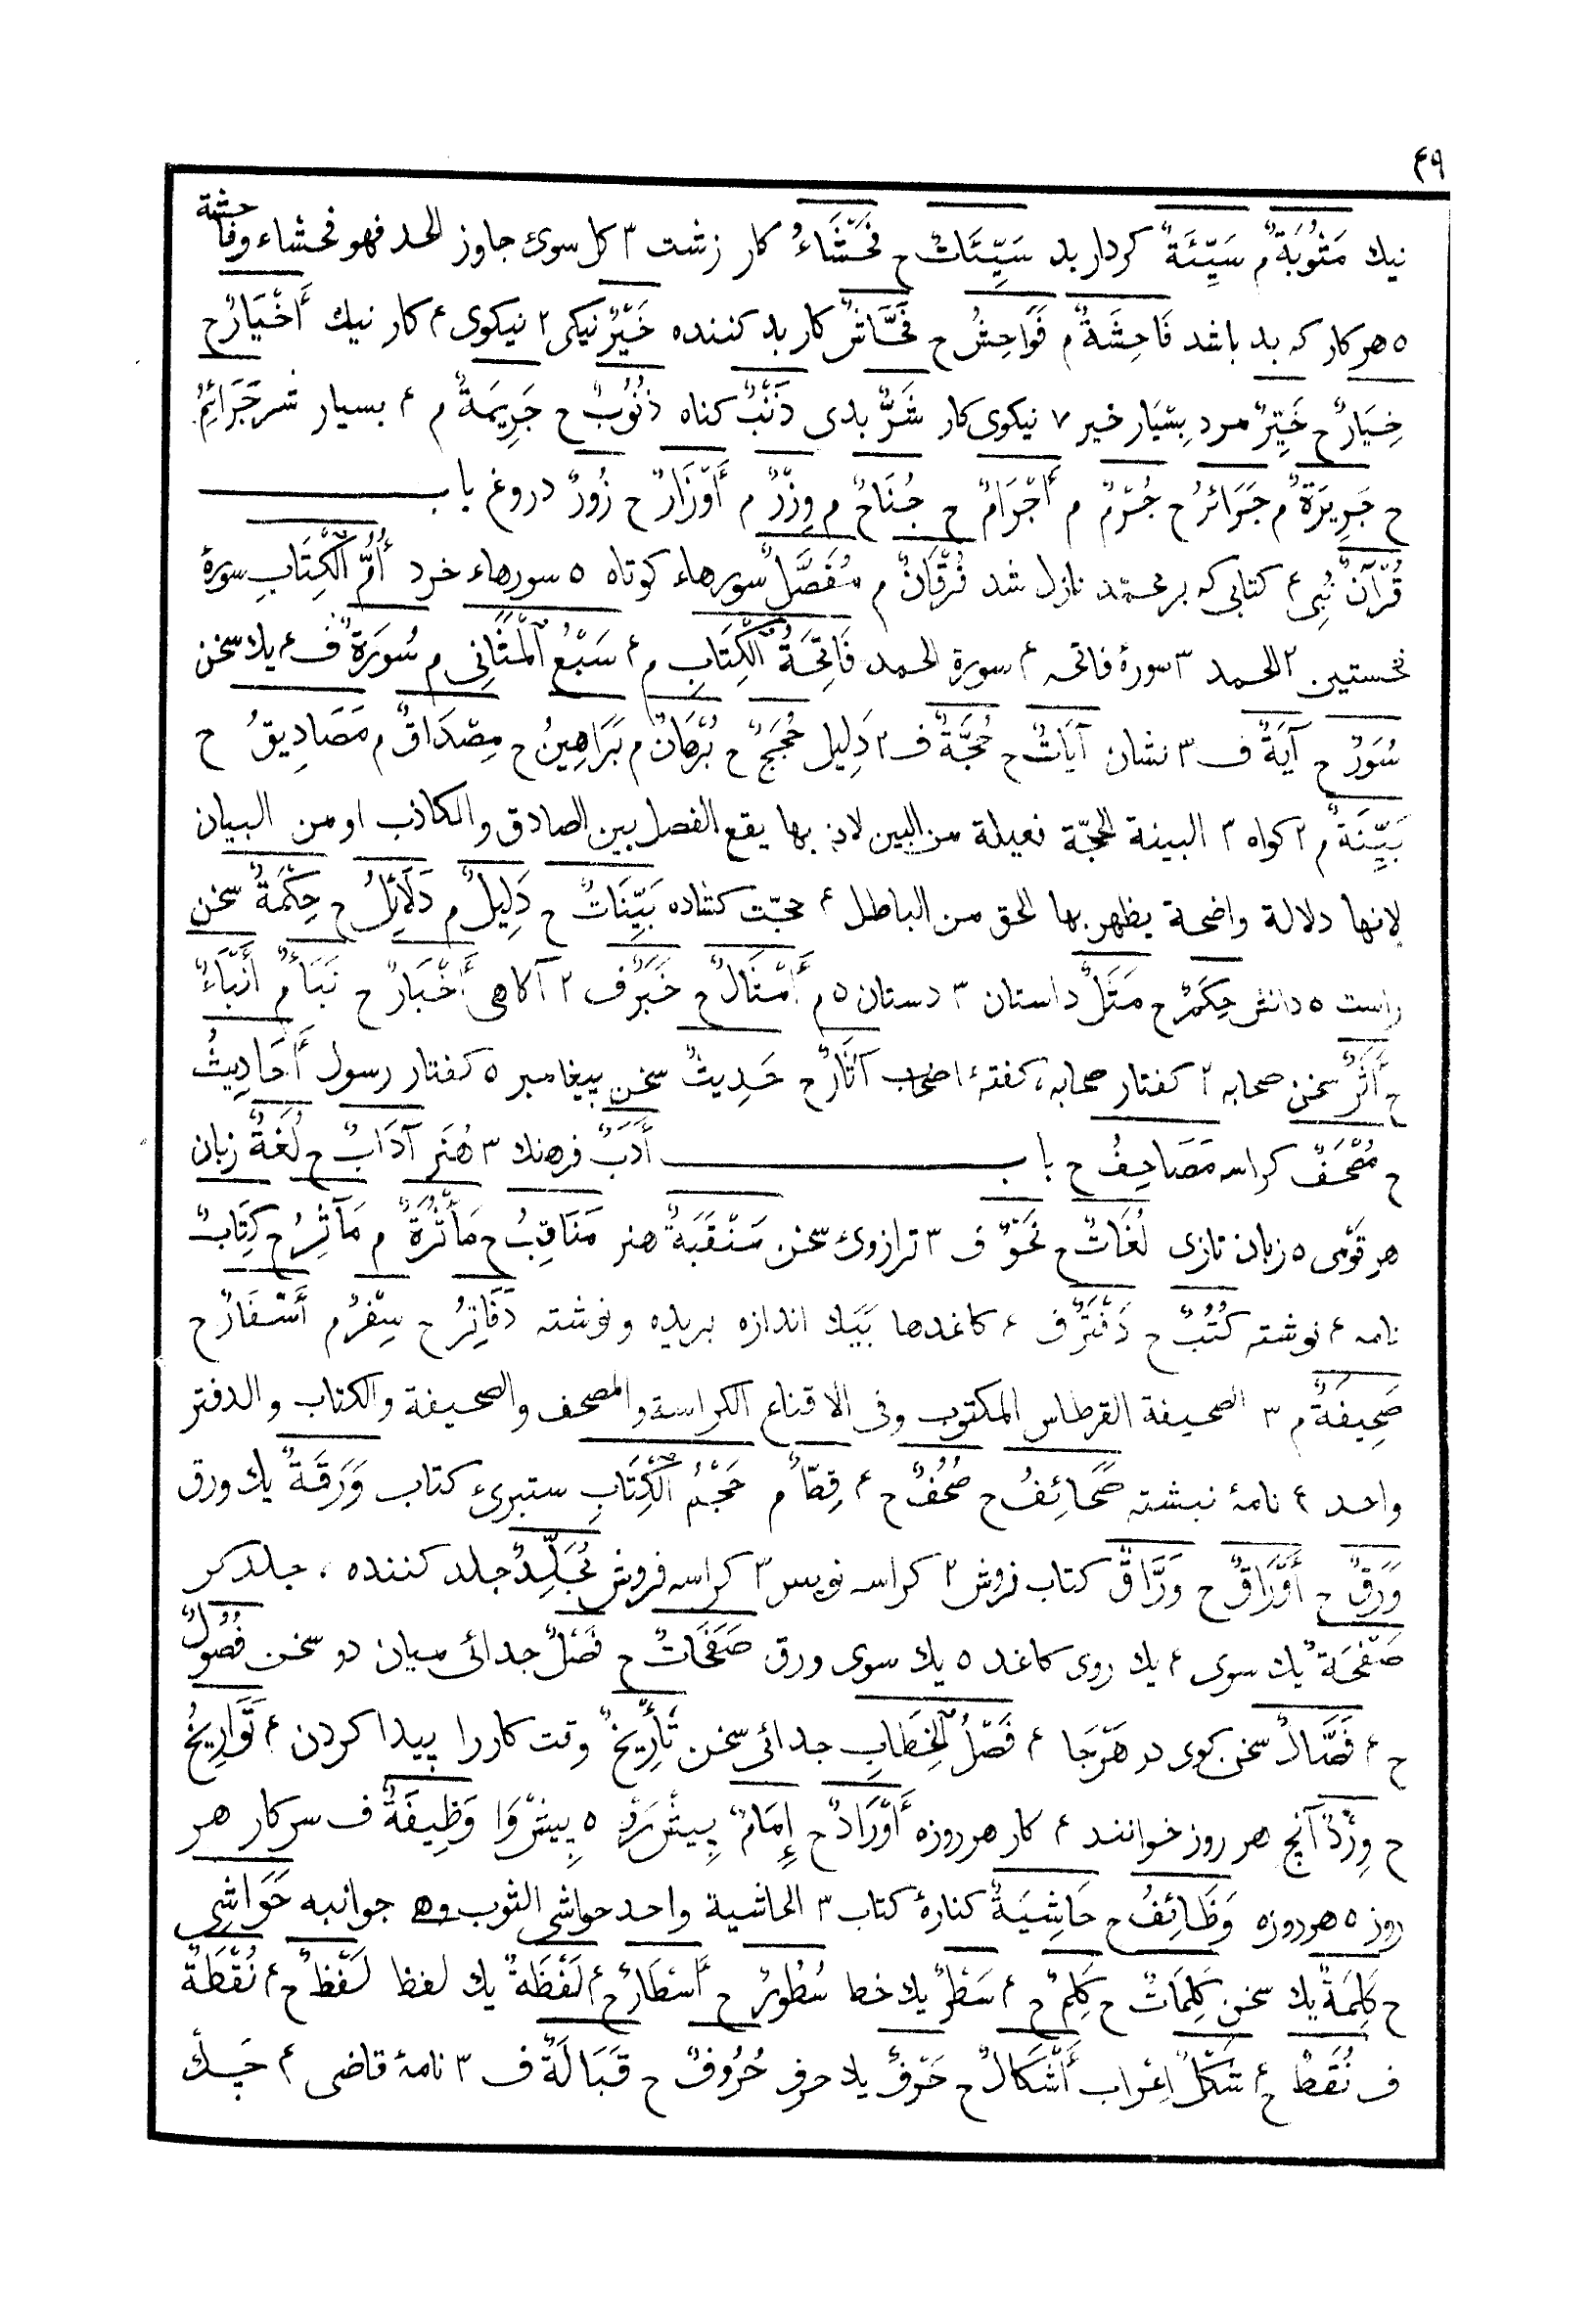 ٤٩
نيك مَثُوبَةٌ م سَيِّئَةٌ كردار بد سَيِّئَاتٌ ح فَحْشَاءُ كار زشت ٣ كل سوئ جاوز الحد فهو فحشاء وفاحشة
٥ هر كار كه بد باشد فَاحِشَةٌ م فَوَاحِشُ ح فَحَّاشٌ كار بد كننده خَيْرٌ نيكى ٢ نيكوى ٤ كار نيك أَخْيَارٌ ح
خِيَارٌ ح خَيِّرٌ مرد بِسْيَار خير ٧ نيكوى كار شَرٌّ بدى ذَنْبٌ كناه ذُنُوبٌ ح جَرِيمَةٌ م ٤ بسيار شر جَرَائِمُ
ح جَرِيرَةٌ م جَرَائِرُ ح جُرْمٌ م أَجْرَامٌ ح جُنَاحٌ م وِزْرٌ م أَوْزَارٌ ح زُورٌ دروغ باب
قُرْآنٌ نُبِى ٤ كتابى كه بر محمّد نازل شد فُرْقَانٌ م مُفَصَّلٌ سورهاء كوتاه ٥ سورهاء خرد أُمُّ الْكِتَابِ سورهٔ
نخستين ٢ الحمد ٣ سورهٔ فاتحه ٤ سورة الحمد فَاتِحَةُ الْكِتَابِ م ٤ سَبْعُ الْمَثَانِى م سُورَةٌ ف ٤ يك سخن
سُوَرٌ ح آيَةٌ ف ٣ نشان آيَاتٌ ح حُجَّةٌ ف ٢ دَلِيل حُجَجٌ ح بُرْهَانٌ م بَرَاهِينُ ح مِصْدَاقٌ م مَصَادِيقُ ح
بَيِّنَةٌ م ٢ كواه ٣ البينة الحجّة فعيلة من البين لان بها يقع الفصل بين الصادق والكاذب او من البيان
لانها دلالة واضحة يظهر بها الحق من الباطل ٤ حجّت كشاده بَيِّنَاتٌ ح دَلِيلٌ م دَلَائِلُ ح حِكْمَةٌ سخن
راست ٥ دانش حِكَمٌ ح مَثَلٌ داستان ٣ دستان ٥ م أَمْثَالٌ ح خَبَرٌ ف ٢ آكاهى أَخْبَارٌ ح نَبَأٌ م أَنْبَاءٌ
ح أَثَرٌ سخن صحابه ٢ كفتار صحابه، كفتهٔ اصحاب آثَارٌ ح حَدِيثٌ سخن پيغامبر ٥ كفتار رسول أَحَادِيثُ
ح مُصْحَفٌ كراسه مَصَاحِفُ ح باب أَدَبٌ فرهنك ٣ هُنَر آدَابٌ ح لُغَةٌ زبان
هر قَوْمى ٥ زبان تازى لُغَاتٌ ح نَحْوٌ ف ٣ ترازوئ سخن مَنْقَبَةٌ هنر مَنَاقِبُ ح مَأْثُرَةٌ م مَآثِرُ ح كِتَابٌ
نامه ٤ نوشته كُتُبٌ ح دَفْتَرٌ ف ٤ كاغدها بَيَك اندازه بريده و نوشته دَفَاتِرُ ح سِفْرٌ م أَسْفَارٌ ح
صَحِيفَةٌ م ٣ الصحيفة القرطاس المكتوب وفى الاقناع الكراسة والمصحف والصحيفة والكتاب والدفتر
واحد ٤ نامهٔ نبشته صَحَائِفُ ح صُحُفٌ ح ٤ قِطٌّ م حَجْمُ الْكِتَابِ ستبرىء كتاب وَرَقَةٌ يك ورق
وَرَقٌ ح أَوْرَاقٌ ح وَرَّاقٌ كتاب فروش ٢ كراسه نويس ٣ كراسه فروش مُجَلِّدٌ جلد كننده ، جلد كر
صَفْحَةٌ يك سوى ٤ يك روى كاغد ٥ يك سوى ورق صَفَحَاتٌ ح فَصْلٌ جدائى ميان دو سخن فُصُولٌ
ح ٤ فَصَّالٌ سخن كوى در هَرْجَا ٤ فَصْلُ الْخِطَابِ جدائى سخن تَأْرِيخٌ وقت كار را پيدا كردن ٤ تَوَارِيخُ
ح وِرْدٌ آنچ هر روز خوانند ٤ كار هر روزه أَوْرَادٌ ح إِمَامٌ پِيشْ رَو ٥ پِيشْوَا وَظِيفَةٌ ف سر كار هر
روز ٥ هر روزه وَظَائِفُ ح حَاشِيَةٌ كنارهٔ كتاب ٣ الحاشية واحد حواشى الثوب وهى جوانبه حَوَاشِى
ح كَلِمَةٌ يك سخن كَلِمَاتٌ ح كَلِمٌ ح ٤ سَطْرٌ يك خط سُطُورٌ ح أَسْطَارٌ ح ٤ لَفْظَةٌ يك لفظ لَفْظٌ ح ٤ نُقْطَةٌ
ف نُقَطٌ ح ٤ شَكْلٌ اِعْراب أَشْكَالٌ ح حَرْفٌ يك حرف حُرُوفٌ ح قَبَالَةٌ ف ٣ نامهٔ قاضى ٤ چَك